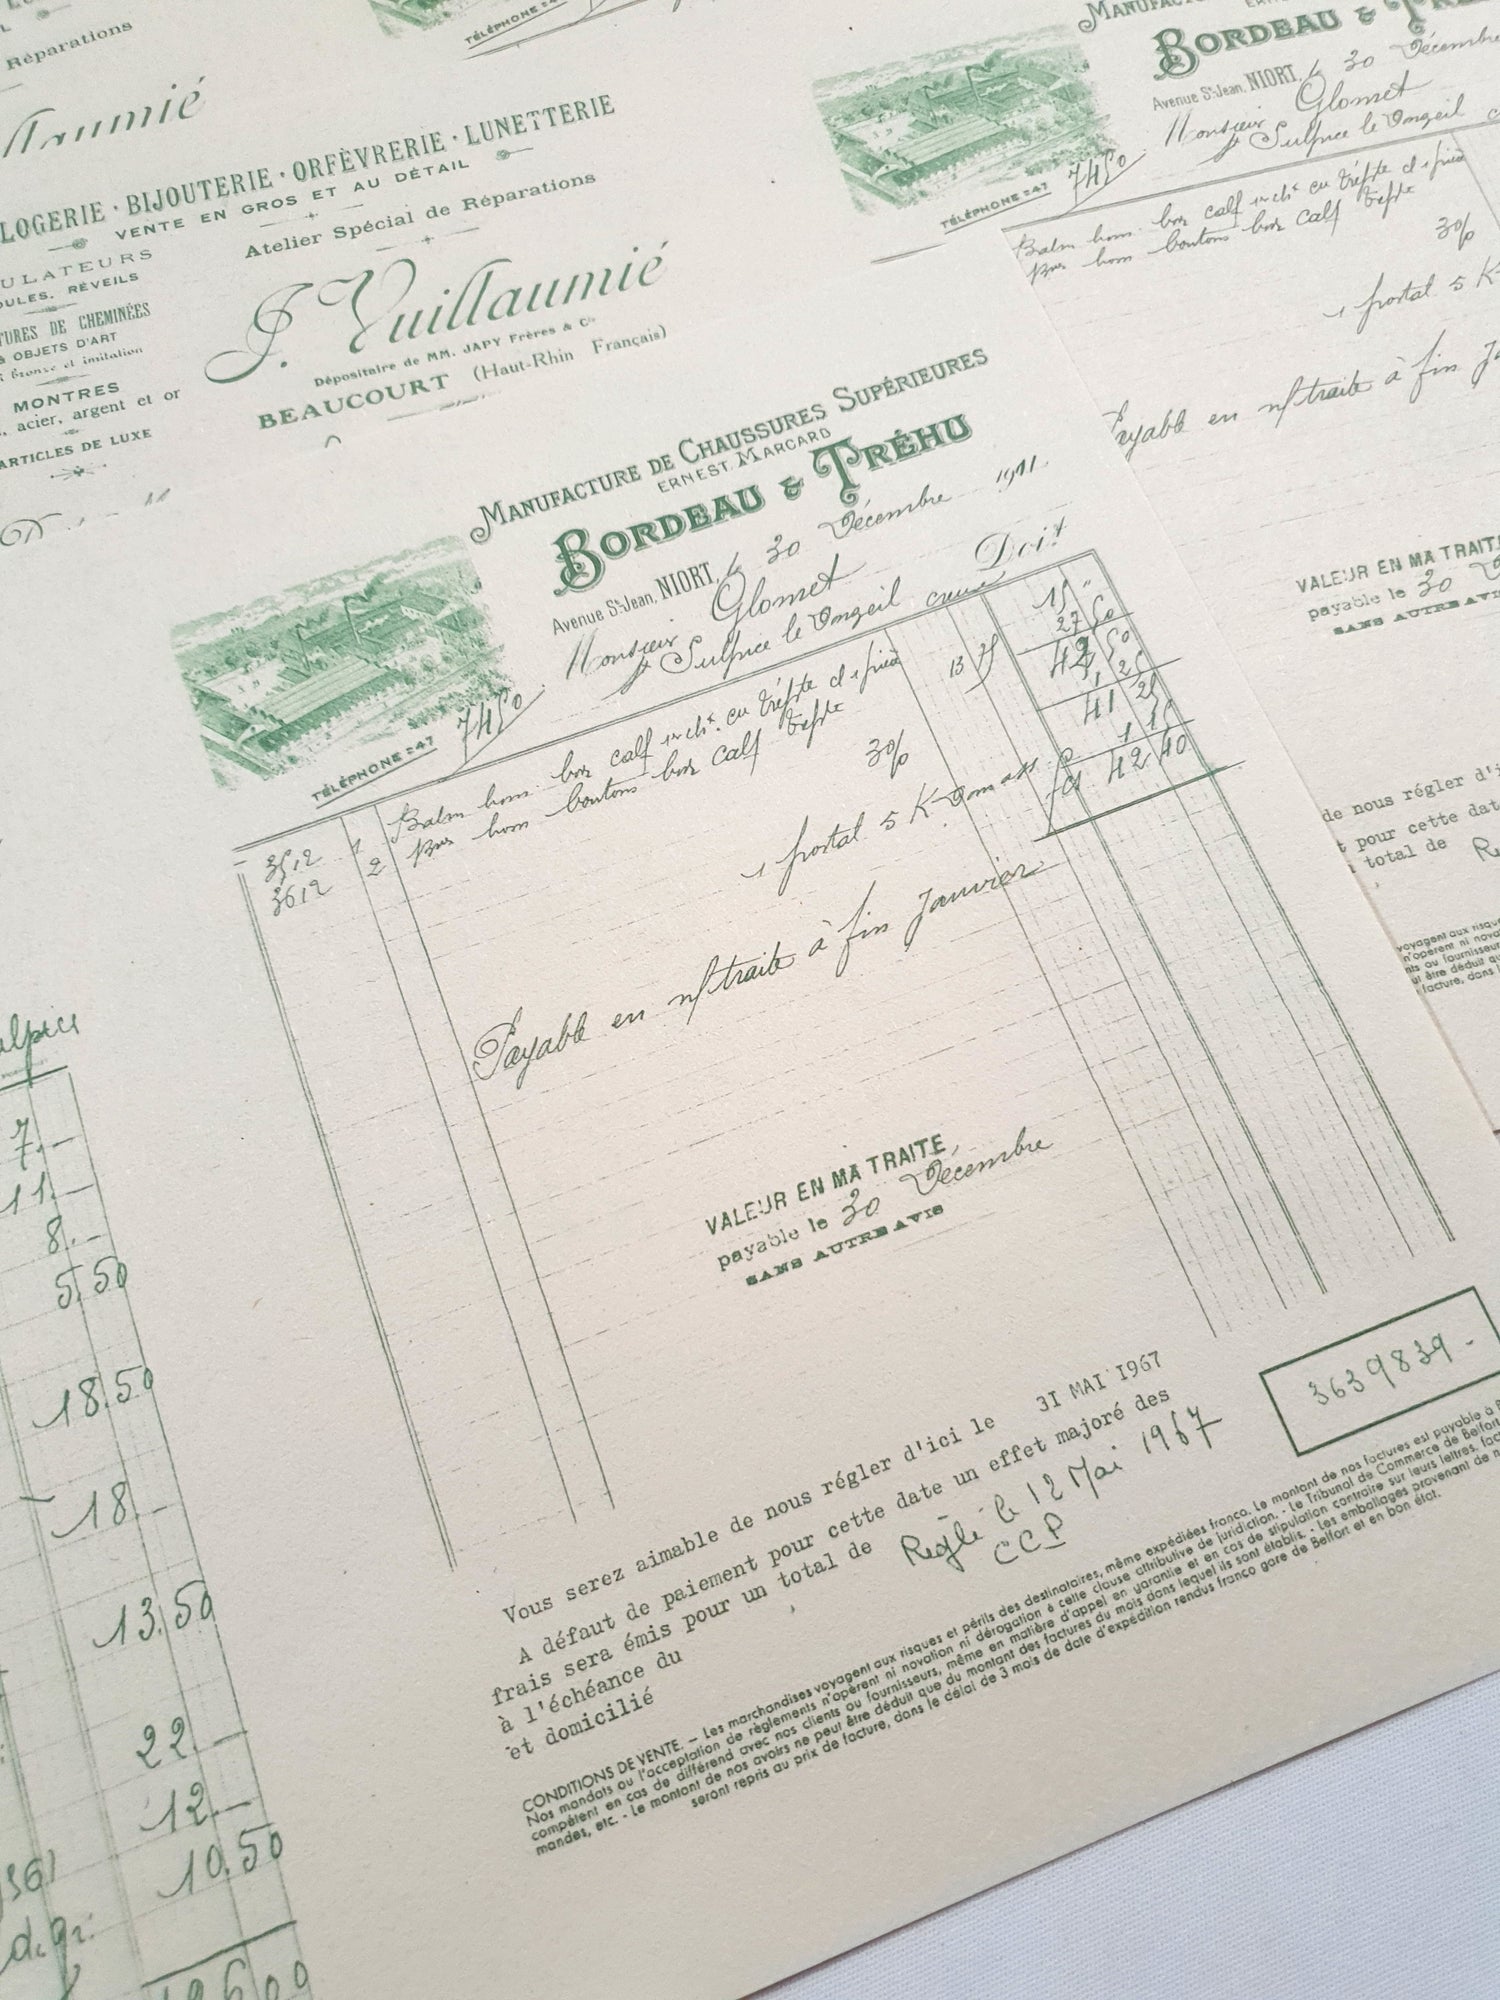 Réparations
HORLOGERIE · BIJOUTERIE · ORFÈVRERIE · LUNETTERIE
VENTE EN GROS ET AU DÉTAIL
Atelier Spécial de Réparations
J. Vuillaumié
Dépositaire de MM. JAPY Frères & Cie
BEAUCOURT (Haut-Rhin Français)
RÉVEILS
DE CHEMINÉES
OBJETS D'ART
bronze et imitation
MONTRES
acier, argent et or
ARTICLES DE LUXE
MANUFACTURE DE CHAUSSURES SUPÉRIEURES
ERNEST MARCARD
BORDEAU & TRÉHU
Avenue St-Jean, NIORT, le 30 Décembre 1911
Monsieur Glomet
St Sulpice le Dongeil creuse Doit
TÉLÉPHONE 2.47
7450
3512 1 Balm hom box calf 15 "
3612 2 hom boutons box calf 13 75 27 50
42 50
3% 1 25
41 25
1 postal 5 K 1 15
42 40
Payable en n/traite à fin Janvier
VALEUR EN MA TRAITE
payable le 30 Décembre
SANS AUTRE AVIS
Vous serez aimable de nous régler d'ici le 31 MAI 1967
A défaut de paiement pour cette date un effet majoré des
frais sera émis pour un total de Réglé le 12 Mai 1967
CCP
à l'échéance du
et domicilié
3639839 -
CONDITIONS DE VENTE. – Les marchandises voyagent aux risques et périls des destinataires, même expédiées franco. Le montant de nos factures est payable à
Nos mandats ou l'acceptation de règlements n'opèrent ni novation ni dérogation à cette clause attributive de juridiction. - Le Tribunal de Commerce de Belfort
compétent en cas de différend avec nos clients ou fournisseurs, même en matière d'appel en garantie et en cas de stipulation contraire sur leurs lettres,
mandes, etc. - Le montant de nos avoirs ne peut être déduit que du montant des factures du mois dans lequel ils sont établis. - Les emballages provenant de
seront repris au prix de facture, dans le délai de 3 mois de date d'expédition rendus franco gare de Belfort et en bon état.
BORDEAU &
Avenue St-Jean, NIORT, le 30 Décembre
Monsieur Glomet
St Sulpice le Dongeil
TÉLÉPHONE 2.47
7450
Balm hom box calf
hom boutons box calf
3%
1 postal 5 K
Payable en n/traite à fin
VALEUR EN MA TRAITE
payable le 30
SANS AUTRE AVIS
de nous régler d'ici
pour cette date
total de
voyagent aux risques
n'opèrent ni
ou fournisseurs
être déduit
facture, dans
7. –
11. –
8. –
5.50
18.50
18. –
13.50
22. –
12. –
10.50